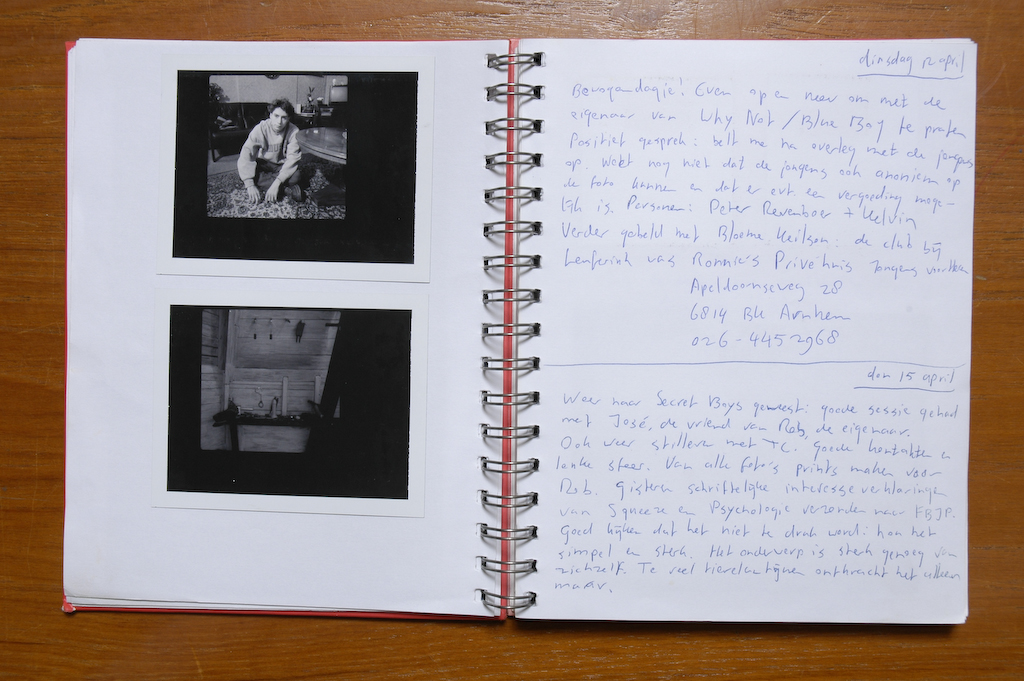 dinsdag 12 april
Even op en neer om met de
eigenaar van Why Not / Blue Boy te praten
Positief gesprek: belt me na overleg met de jongens
op. Weet nog niet dat de jongens ook anoniem op
de foto kunnen en dat er evt. een vergoeding moge-
lijk is. Personen: Peter + Kelvin
Verder gebeld met : de club bij
was Ronnie's Privéhuis jongens
Apeldoornseweg 28
6814 BK Arnhem
026-4452968
don 15 april
Weer naar Secret Boys geweest: goede sessie gehad
met José, de vriend van Rob, de eigenaar.
Ook weer stilleven met TC. Goede kontakten en
leuke sfeer. Van alle foto's prints maken voor
Rob. Gisteren schriftelijke interesseverklaringen
van Squeeze en Psychologie verzonden naar FBJP.
Goed kijken dat het niet te druk word: hou het
simpel en sterk. Het onderwerp is sterk genoeg van
zichzelf. Te veel tierelantijnen ontkracht het alleen
maar.